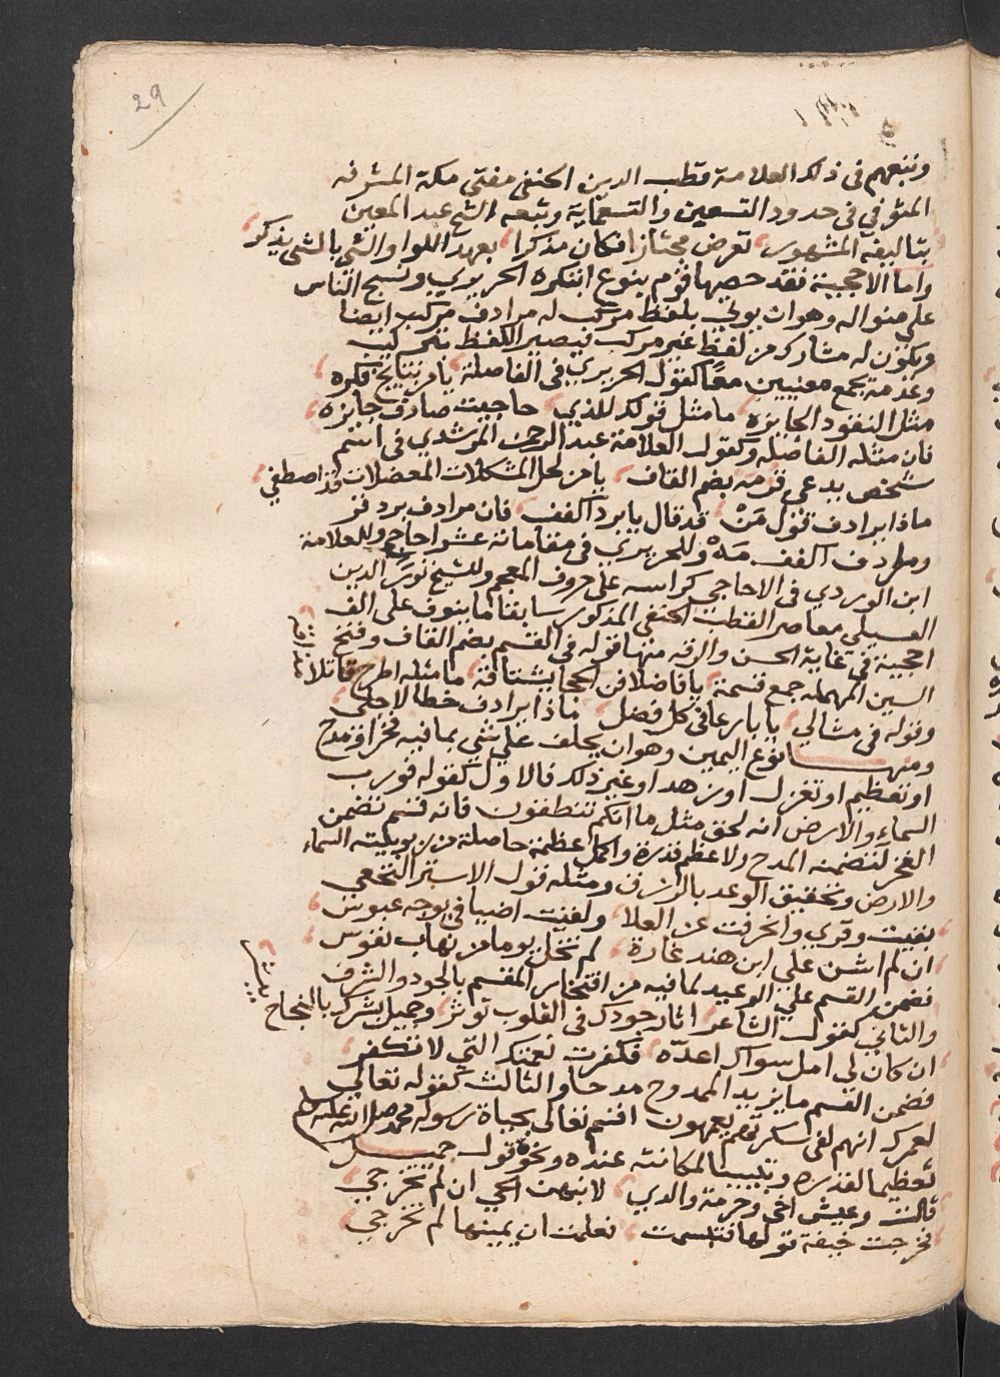 29
وتبعهم في ذلك العلامة قطب الدين الحنفي مفتي مكة المشرفه
المتوفي في حدود التسعين والتسعماية وتبعه الشيخ عبد المعين
بتاليفه المشهور تعرض مجتازا فكان مذكرا بعهد اللوا والشي بالشي يذكر
واما الاحجية فقد خصها قوم بنوع ابتكره الحريري ونسج الناس
علي منواله وهو ان يوتي بلفظ مركب له مرادف مركب ايضا
ويكون له مشارك من لفظ غير مركب فيصير اللفظ بتركيب
وعدمه يجمع معنيين معا كقول الحريري في الفاصلة يا من نتايج فكره
مثل النقود الجايزه ما مثل قولك للذي حاجيت صادف جايزه
فان مثله الفاصله وكقول العلامة عبد الرحمن المرشدي في اسم
شخص يدعي قرمه بضم القاف يا من لحل المشكلات المعضلات قد اصطفي
ماذا يرادف قول مَنْ قد قال يا برد اكفف فان مرادف برد قر
ومرادف اكفف مَهْ وللحريري في مقاماته عشر احاجي وللعلامة
ابن الوردي في الاحاجي كراسه علي حروف المعجم وللشيخ نور الدين
العسيلي معاصر القطب الحنفي المذكور سابقا ما ينوف علي الف
احجية في غاية الحسن والرقه منها قوله في القسم بضم القاف وفتح
السين المهمله جمع قسمة يا فاضلا فن الحجا يشتاقه ما مثله اطرح قاتلا
وقوله في مثالي يا بارعا في كل فضل ماذا يرادف خطا لاجلي
ومنها نوع اليمين وهو ان يحلف علي شي بما فيه فخر او مدح
او تعظيم او تغزل او زهد او غير ذلك فالاول كقوله فورب
السماء والارض انه لحق مثل ما انكم تنطقون فانه قسم تضمن
الفخر لتضمنه المدح ولاعظم قدرة واكمل عظمة حاصلة من ربوبيته السماء
والارض وتحقيق الوعد بالرزق ومثله قول الاشتر النخعي
بقيت وفري وانحرفت عن العلا ولقيت اضيافي بوجه عبوس
ان لم اشن علي ابن هند غارة لم تخل يوما من نهاب نفوس
فضمن القسم علي الوعيد لما فيه من افتخار المقسم بالجود والشرف
والثاني كقول الشاعر اثار جودك في القلوب توثر وجميل بشرك بالنجاح
ان كان لي امل سواك اعده فكفرت نعمتك التي لا تكفر
فضمن القسم ما يزيد الممدوح مدحا والثالث كقوله تعالي
لعمرك انهم لفي سكرتهم يعمهون اقسم تعالي بحياة رسوله محمد صلي الله عليه وسلم
تعظيما لقدره وتبيينا لمكانته عنده ونحوه قول جميل
قالت وعيش اخي وحرمة والدي لانبهن الحي ان لم تخرجي
فخرجت خيفة قولها فتبسمت فعلمت ان يمينها لم تخرجي